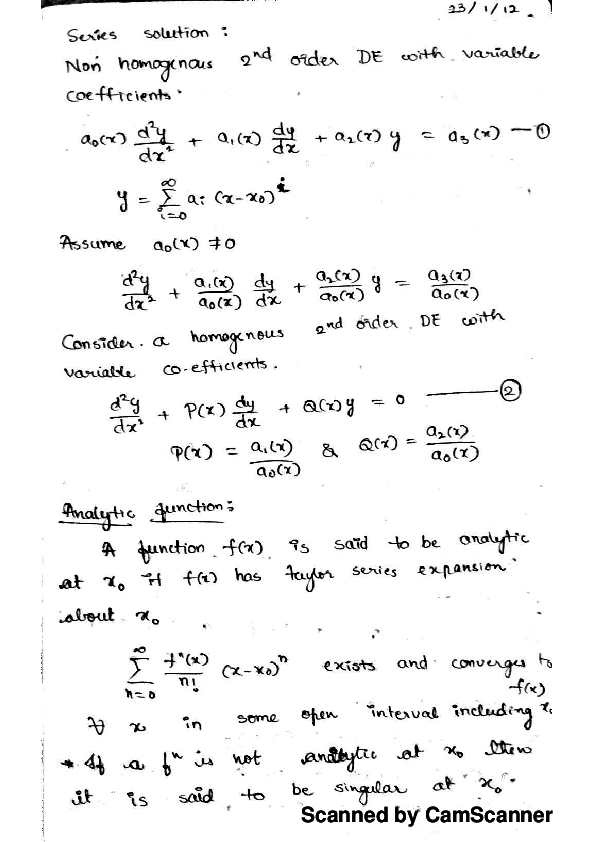 23/1/12.
Series solution :
Non homogenous 2nd order DE with variable
coefficients.
a₀(x) d²y/dx² + a₁(x) dy/dx + a₂(x) y = a₃(x) — ①
y = ∑_{i=0}^{∞} aᵢ (x-x₀)^i
Assume a₀(x) ≠ 0
d²y/dx² + a₁(x)/a₀(x) dy/dx + a₂(x)/a₀(x) y = a₃(x)/a₀(x)
Consider a homogenous 2nd order DE with
variable co-efficients.
d²y/dx² + P(x) dy/dx + Q(x)y = 0 — ②
P(x) = a₁(x)/a₀(x) & Q(x) = a₂(x)/a₀(x)
Analytic function:
A function f(x) is said to be analytic
at x₀ if f(x) has taylor series expansion
about x₀
∑_{n=0}^{∞} fⁿ(x)/n! (x-x₀)ⁿ exists and converges to
f(x)
∀ x in some open interval including x₀
* If a fⁿ is not analytic at x₀ then
it is said to be singular at x₀.
Scanned by CamScanner